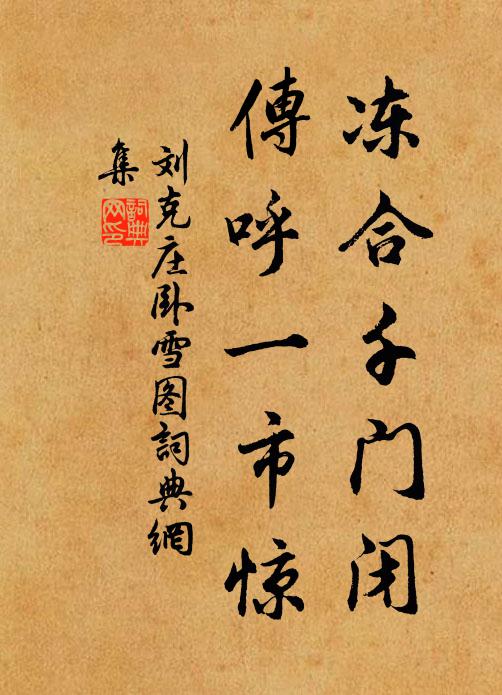 冻合千门闭
傳呼一市惊
刘克庄卧雪图詞典網
集
詞典
网印